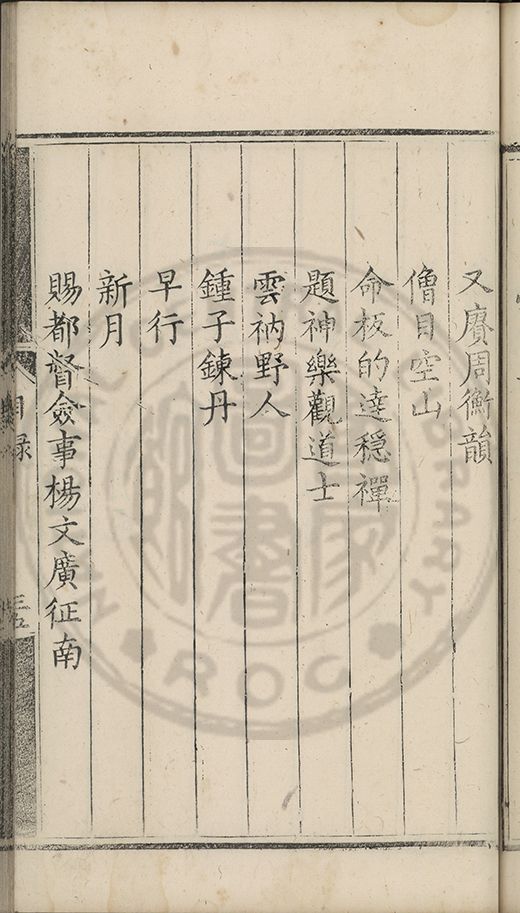 又賡周衡韻
僧目空山
命板的達穩禪
題神樂觀道士
雲衲野人
鍾子鍊丹
早行
新月
賜都督僉事楊文廣征南
目錄
圖書
ROC